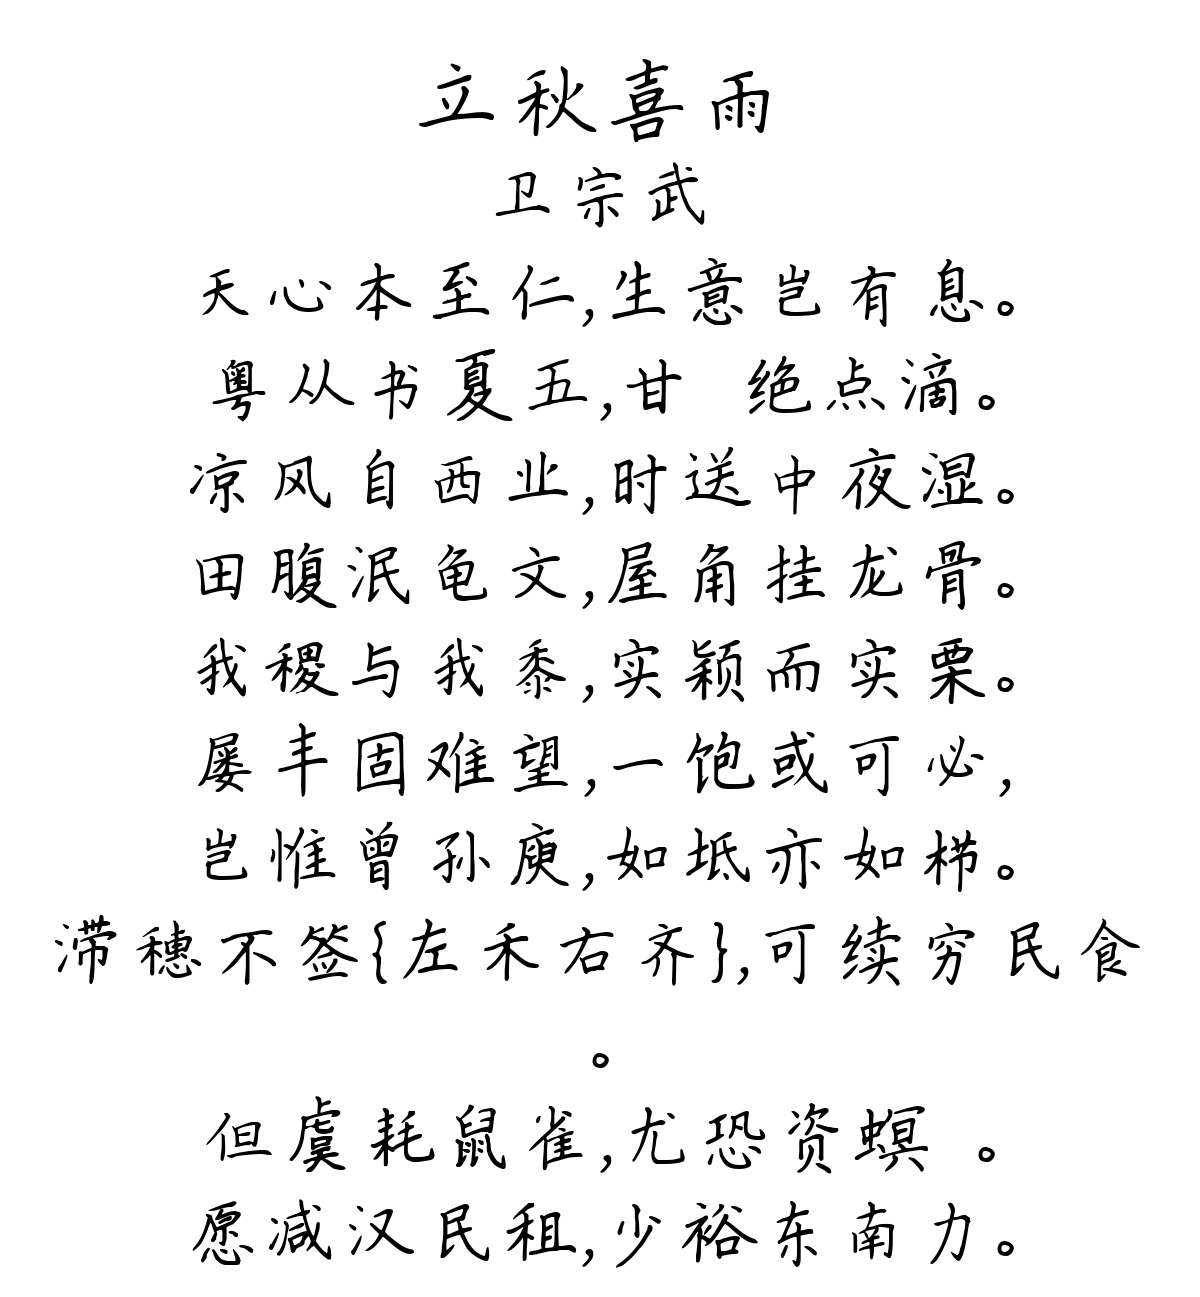 立秋喜雨
卫宗武
天心本至仁,生意岂有息。
粤从书夏五,甘 绝点滴。
凉风自西业,时送中夜湿。
田腹泯龟文,屋角挂龙骨。
我稷与我黍,实颖而实栗。
屡丰固难望,一饱或可必,
岂惟曾孙庾,如坻亦如栉。
滞穗不签{左禾右齐},可续穷民食
。
但虞耗鼠雀,尤恐资螟 。
愿减汉民租,少裕东南力。